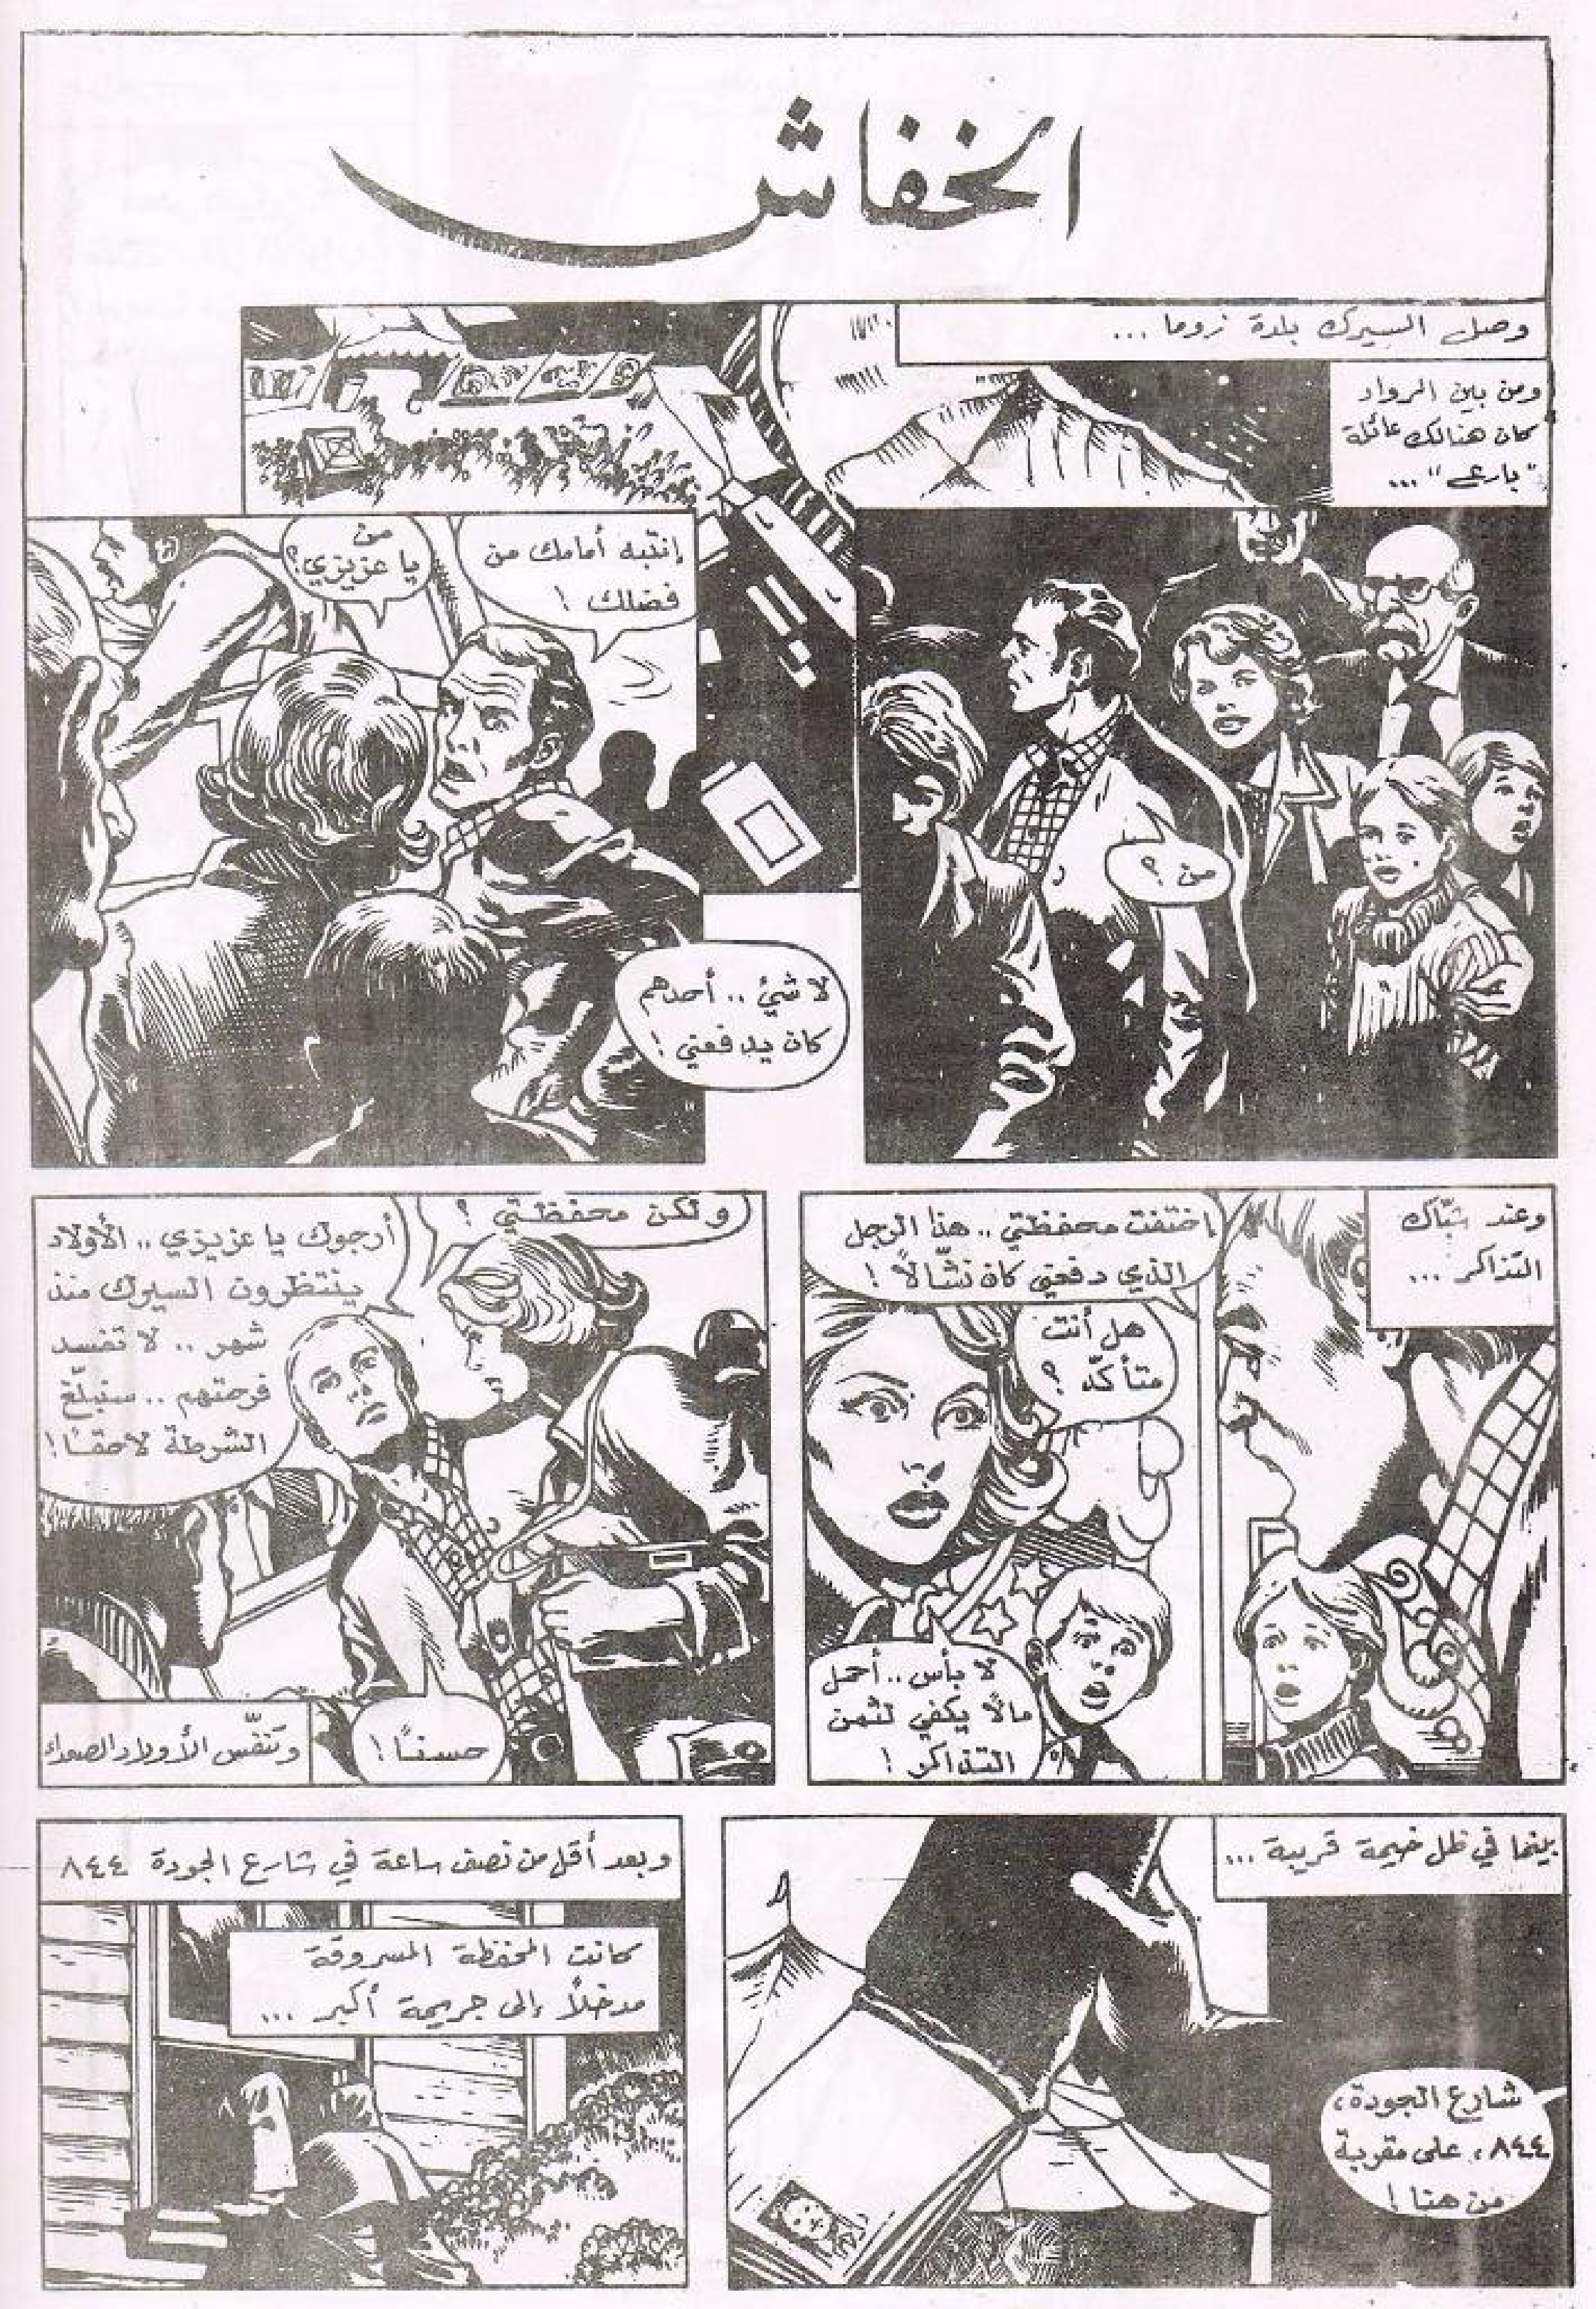 الخفاش
وصل السيرك بلدة زوما ...
ومن بين الرواد
كان هنالك عائلة
"بارعي" ...
من ؟
إنتبه أمامك من
فضلك !
من
يا عزيزي؟
لا شئ .. أحدهم
كان يدفعني !
وعند شبّاك
التذاكر ...
إختفت محفظتي .. هذا الرجل
الذي دفعني كان نشّالاً !
هل أنت
متأكدّ ؟
لا بأس .. أحمل
مالًا يكفي لثمن
التذاكر !
ولكن محفظتي ؟
أرجوك يا عزيزي .. الأولاد
ينتظرون السيرك منذ
شهر .. لا تفسد
فرحتهم .. سنبلّغ
الشرطة لاحقًا !
حسنًا !
وتنفّس الأولاد الصعداء
بينما في ظل خيمة قريبة ...
شارع الجودة،
٨٤٤، على مقربة
من هنا !
وبعد أقل من نصف ساعة في شارع الجودة ٨٤٤
كانت المحفظة المسروقة
مدخلاً إلى جريمة أكبر ...